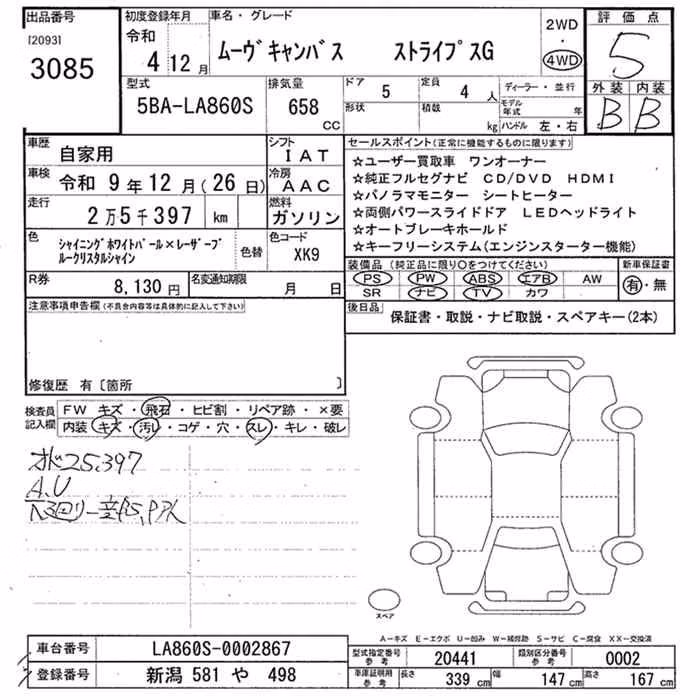 出品番号
[2093]
3085
初度登録年月
令和
4 12 月
車名・グレード
ムーヴキャンバス ストライプスG
2WD
・
4WD
評価点
5
外装 内装
B B
型式
5BA-LA860S
排気量
658 CC
ドア 5
定員 4 人
形状
積載 kg
ディーラー・並行
モデル年式 年
ハンドル 左・右
車歴 自家用
シフト IAT
車検 令和 9年12月(26日)
冷房 AAC
走行 2万5千397 km
燃料 ガソリン
色 シャイニングホワイトパール×レーザーブ
ルークリスタルシャイン
色替
色コード XK9
R券 8,130 円
名変通知期限 月 日
セールスポイント(正常に機能するものに限ります)
☆ユーザー買取車 ワンオーナー
☆純正フルセグナビ CD/DVD HDMI
☆パノラマモニター シートヒーター
☆両側パワースライドドア LEDヘッドライト
☆オートブレーキホールド
☆キーフリーシステム(エンジンスターター機能)
装備品(純正品に限り○をつけてください)
PS PW ABS エアB AW
SR ナビ TV カワ
新車保証書
有・無
後日品
保証書・取説・ナビ取説・スペアキー(2本)
注意事項申告欄(不具合内容等は具体的に記入して下さい)
修復歴 有〔箇所 〕
検査員
記入欄
FW キズ・飛石・ヒビ割・リペア跡・×要
内装・キズ・汚レ・コゲ・穴・スレ・キレ・破レ
25,397
A,U
スペア
A-キズ E-エクボ U-凹み W-補修跡 S-サビ C-腐食 XX-交換済
車台番号 LA860S-0002867
登録番号 新潟 581 や 498
型式指定番号
参考
20441
類別区分番号
参考
0002
車庫証明用
参考
長さ 339 cm
幅 147 cm
高さ 167 cm